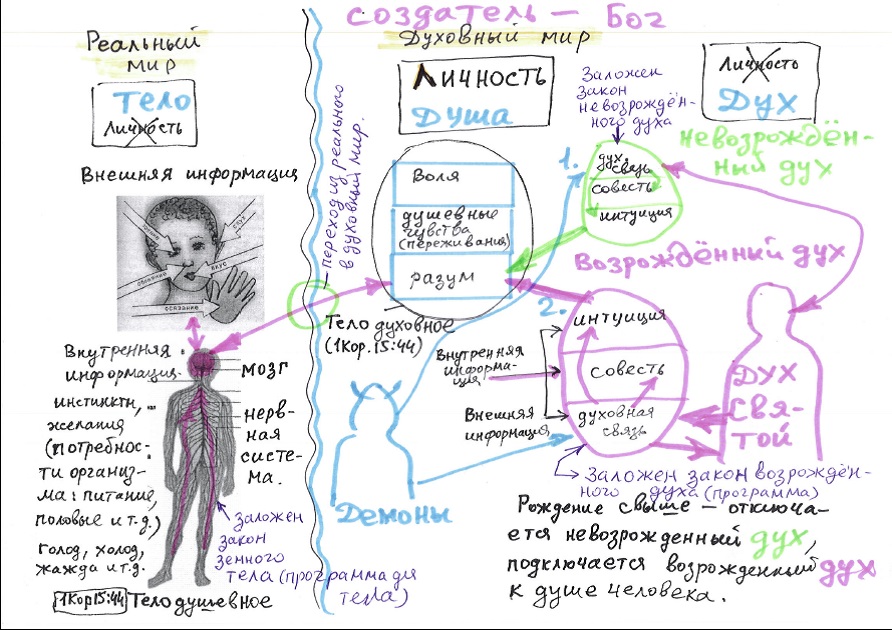 создатель – Бог
Реальный
мир
Тело
Личность
Внешняя информация
слух
вкус
обоняние
осязание
Внутренняя
информация.
инстинкты,
желания
(потребнос-
ти организ-
ма: питание,
половые и т.д.)
голод, холод,
жажда и т.д.
1Кор15:44 Тело душевное
мозг
нерв-
ная
систе-
ма.
заложен
закон
земного
тела (программа для
тела)
переход из реального
в духовный мир.
Духовный мир
Личность
Душа
Воля
душевные
чувства
(переживания)
разум
Тело духовное
(1Кор.15:44)
Заложен
закон
невозрождён-
ного духа
Личность
Дух
невозрождён-
ный дух
1.
дух.
связь
совесть
интуиция
Возрождённый дух
2.
интуиция
совесть
духовная
связь
Внутренняя
информа-
ция
Внешняя
информация
Демоны
Дух
Свя-
той
Заложен закон возрождён-
ного духа (программа)
Рождение свыше – отключа-
ется невозрожденный дух,
подключается возрожденный дух
к душе человека.